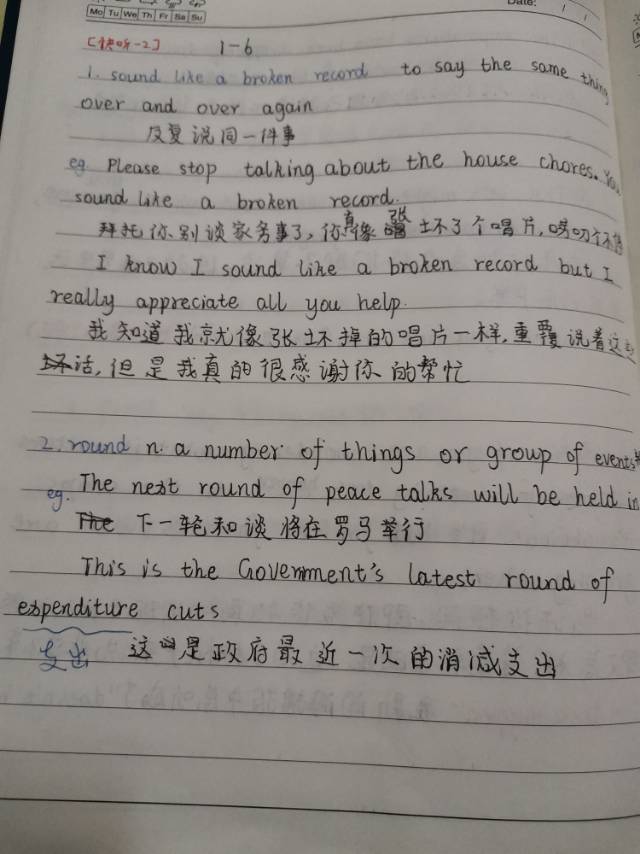 Mo Tu We Th Fr Sa Su
Date: / /
[快听-2] 1-6
1. sound like a broken record to say the same thing
over and over again
反复说同一件事
eg Please stop talking about the house chores. You
sound like a broken record.
拜托你别谈家务事了,你真像张坏了个唱片,唠叨个不停
I know I sound like a broken record but I
really appreciate all you help.
我知道我就像张坏掉的唱片一样,重覆说着这
话,但是我真的很感谢你的帮忙
2. round n. a number of things or group of events
eg. The next round of peace talks will be held in
The 下一轮和谈将在罗马举行
This is the Government's latest round of
expenditure cuts
支出 这是政府最近一次的消减支出